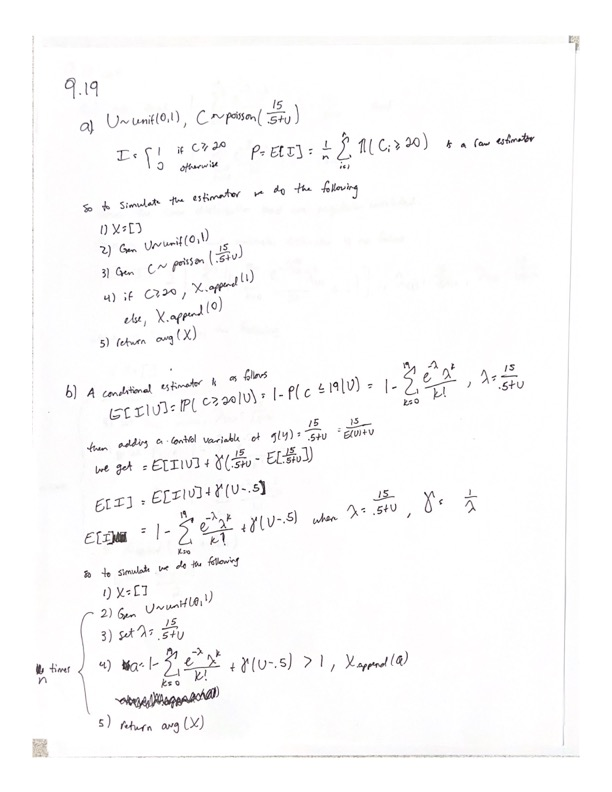 9.19
a) U~unif(0,1), C~poisson(15/.5+U)
I = { 1 if C≥20
0 otherwise
P = E[I] = 1/n Σ_{i=1}^{n} 𝟙(C_i ≥ 20) is a raw estimator
so to simulate the estimator we do the following
1) X=[]
2) Gen U~unif(0,1)
3) Gen C ~ poisson(15/.5+U)
4) if C≥20, X.append(1)
else, X.append(0)
5) return avg(X)
b) A conditional estimator is as follows
E[I|U] = P(C≥20|U) = 1-P(C≤19|U) = 1 - Σ_{k=0}^{19} e^{-λ} λ^k / k! , λ = 15/.5+U
then adding a control variable of g(y) = 15/.5+U = 15/E(U)+U
we get = E[I|U] + γ(15/.5+U - E[15/.5+U])
E[I] = E[I|U] + γ(U-.5]
E[I] = 1 - Σ_{k=0}^{19} e^{-λ} λ^k / k! + γ(U-.5) when λ = 15/.5+U , γ = 1/λ
so to simulate we do the following
1) X=[]
2) Gen U~unif(0,1)
3) Set λ = 15/.5+U
n times
4) a = 1 - Σ_{k=0}^{19} e^{-λ} λ^k / k! + γ(U-.5) > 1, X append(a)
5) return avg(X)